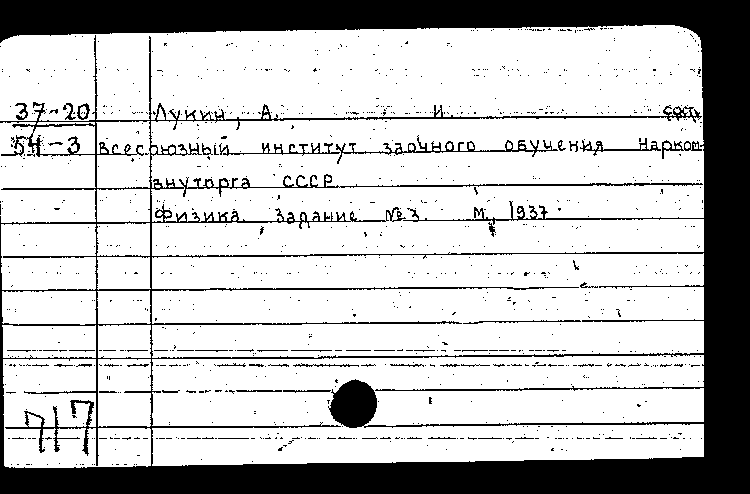 37-20 Лукин, А. И. сост.
54-3 Всесоюзный институт заочного обучения Нарком-
внуторга СССР
Физика. Задание №3. М., 1937.
717